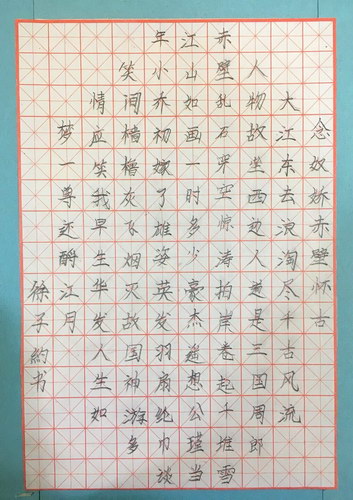 念奴娇赤壁怀古
大江东去浪淘尽千古风流
人物故垒西边人道是三国周郎
赤壁乱石穿空惊涛拍岸卷起千堆雪
江山如画一时多少豪杰遥想公瑾当
年小乔初嫁了雄姿英发羽扇纶巾谈
笑间樯橹灰飞烟灭故国神游多
情应笑我早生华发人生如
梦一尊还酹江月
徐子約书